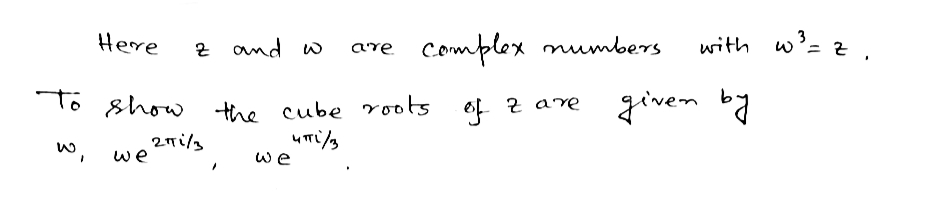 Here z and w are complex numbers with w³ = z.
To show the cube roots of z are given by
w, we^{2πi/3}, we^{4πi/3}.